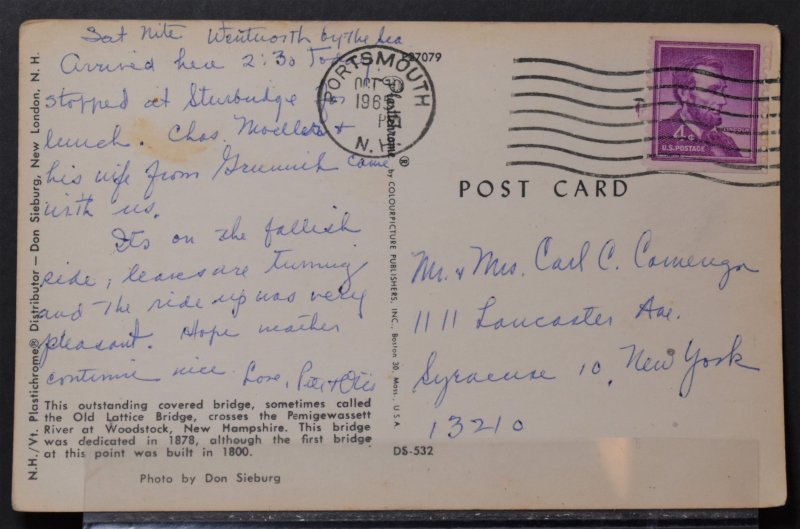 Sat Nite Wentworth by the Sea
Arrived here 2:30 Today
stopped at Sturbridge for
lunch. Chas. Moellers &
his wife from Greenwich came
with us.
Its on the fallish
side, leaves are turning
and the ride up was very
pleasant. Hope weather
continue nice. Love, & Otis
This outstanding covered bridge, sometimes called
the Old Lattice Bridge, crosses the Pemigewassett
River at Woodstock, New Hampshire. This bridge
was dedicated in 1878, although the first bridge
at this point was built in 1800.
Photo by Don Sieburg
N.H./Vt. Plastichrome® Distributor — Don Sieburg, New London, N. H.
27079
Plastichrome ® by COLOURPICTURE PUBLISHERS, INC., Boston 30, Mass., U.S.A.
DS-532
PORTSMOUTH
OCT
N.H.
4¢
U.S. POSTAGE
POST CARD
Mr. & Mrs. Carl C.
1111 Lancaster Ave.
Syracuse 10, New York
13210